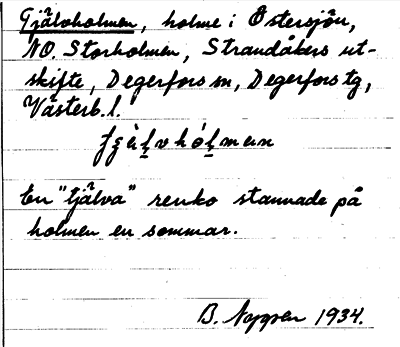 Tjälvholmen, holme i Östersjön,
NO. Storholmen, Strandåkers ut-
skifte, Degerfors sn, Degerfors tg,
Västerb. l.
En "tjälva" renko stannade på
holmen en sommar.
B. 1934.